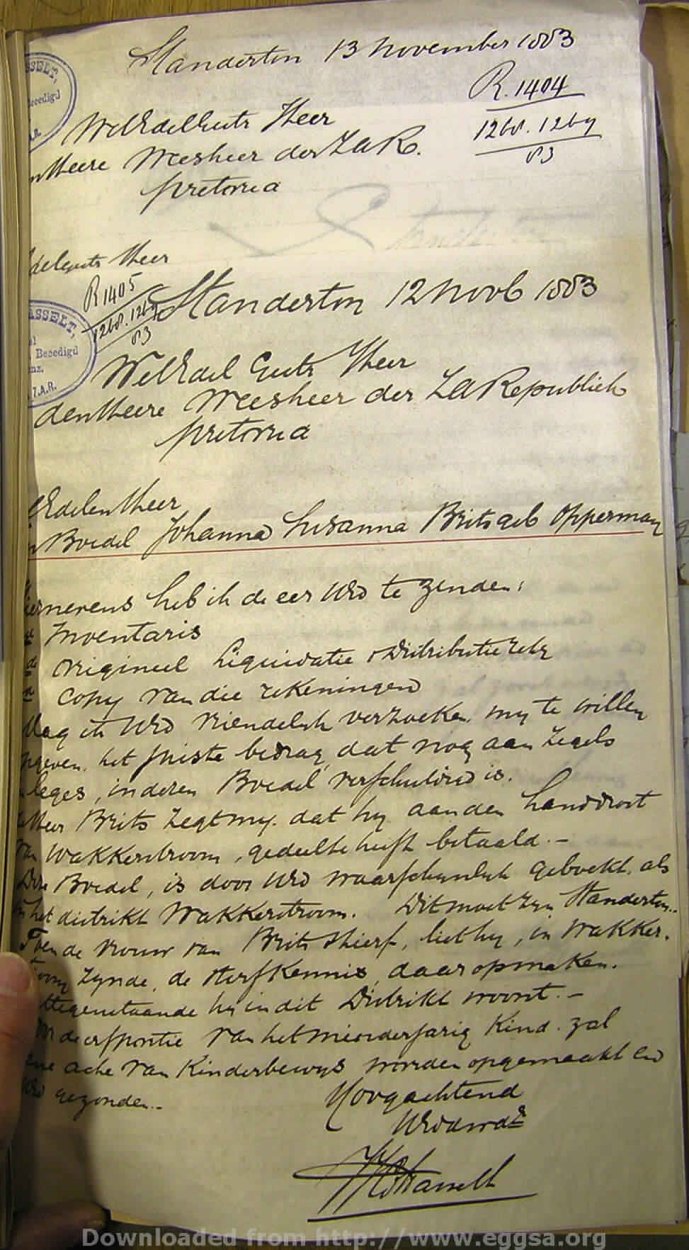 Standerton 13 November 1883
R. 1404
1268. 1269
83
WelEdelGestr Heer
Heere Weesheer der ZAR.
Pretoria
SSELT,
eedigd
A.R.
delgestr Heer
R 1405
1268. 1269
83
Standerton 12 Novb 1883
ASSELT,
Beeedigd
Z.A.R.
WelEdel Gestr Heer
den Heere Weesheer der ZA Republiek
Pretoria
Edelen Heer
Boedel Johanna Susanna Brits geb Opperman
nevens heb ik de eer UEd te zenden:
Inventaris
Origineel Liquidatie & Distributie rekg
Copy van die rekeningen
Mag ik UEd vriendelyk verzoeken my te willen
opgeven, het juiste bedrag, dat nog aan Zegels
leges, in dezen Boedel verschuldied is.
Heer Brits zegt my, dat hy aan den Landdrost
van Wakkerstroom, gedeelte heeft betaald.-
Deze Boedel, is door UEd waarschynlyk geboekt, als
in het distrikt Wakkerstroom. Dit moet zyn Standerton.
Toen de vrouw van Brits stierf, liet hy, in Wakker-
stroom zynde, de sterfkennis daar opmaken.
niettegenstaande hy in dit Distrikt woont.-
de erfportie van het minderjarig Kind zal
eene acte van Kinderbewys worden opgemaakt en
UEd gezonden.-
Hoogachtend
UEddwdr